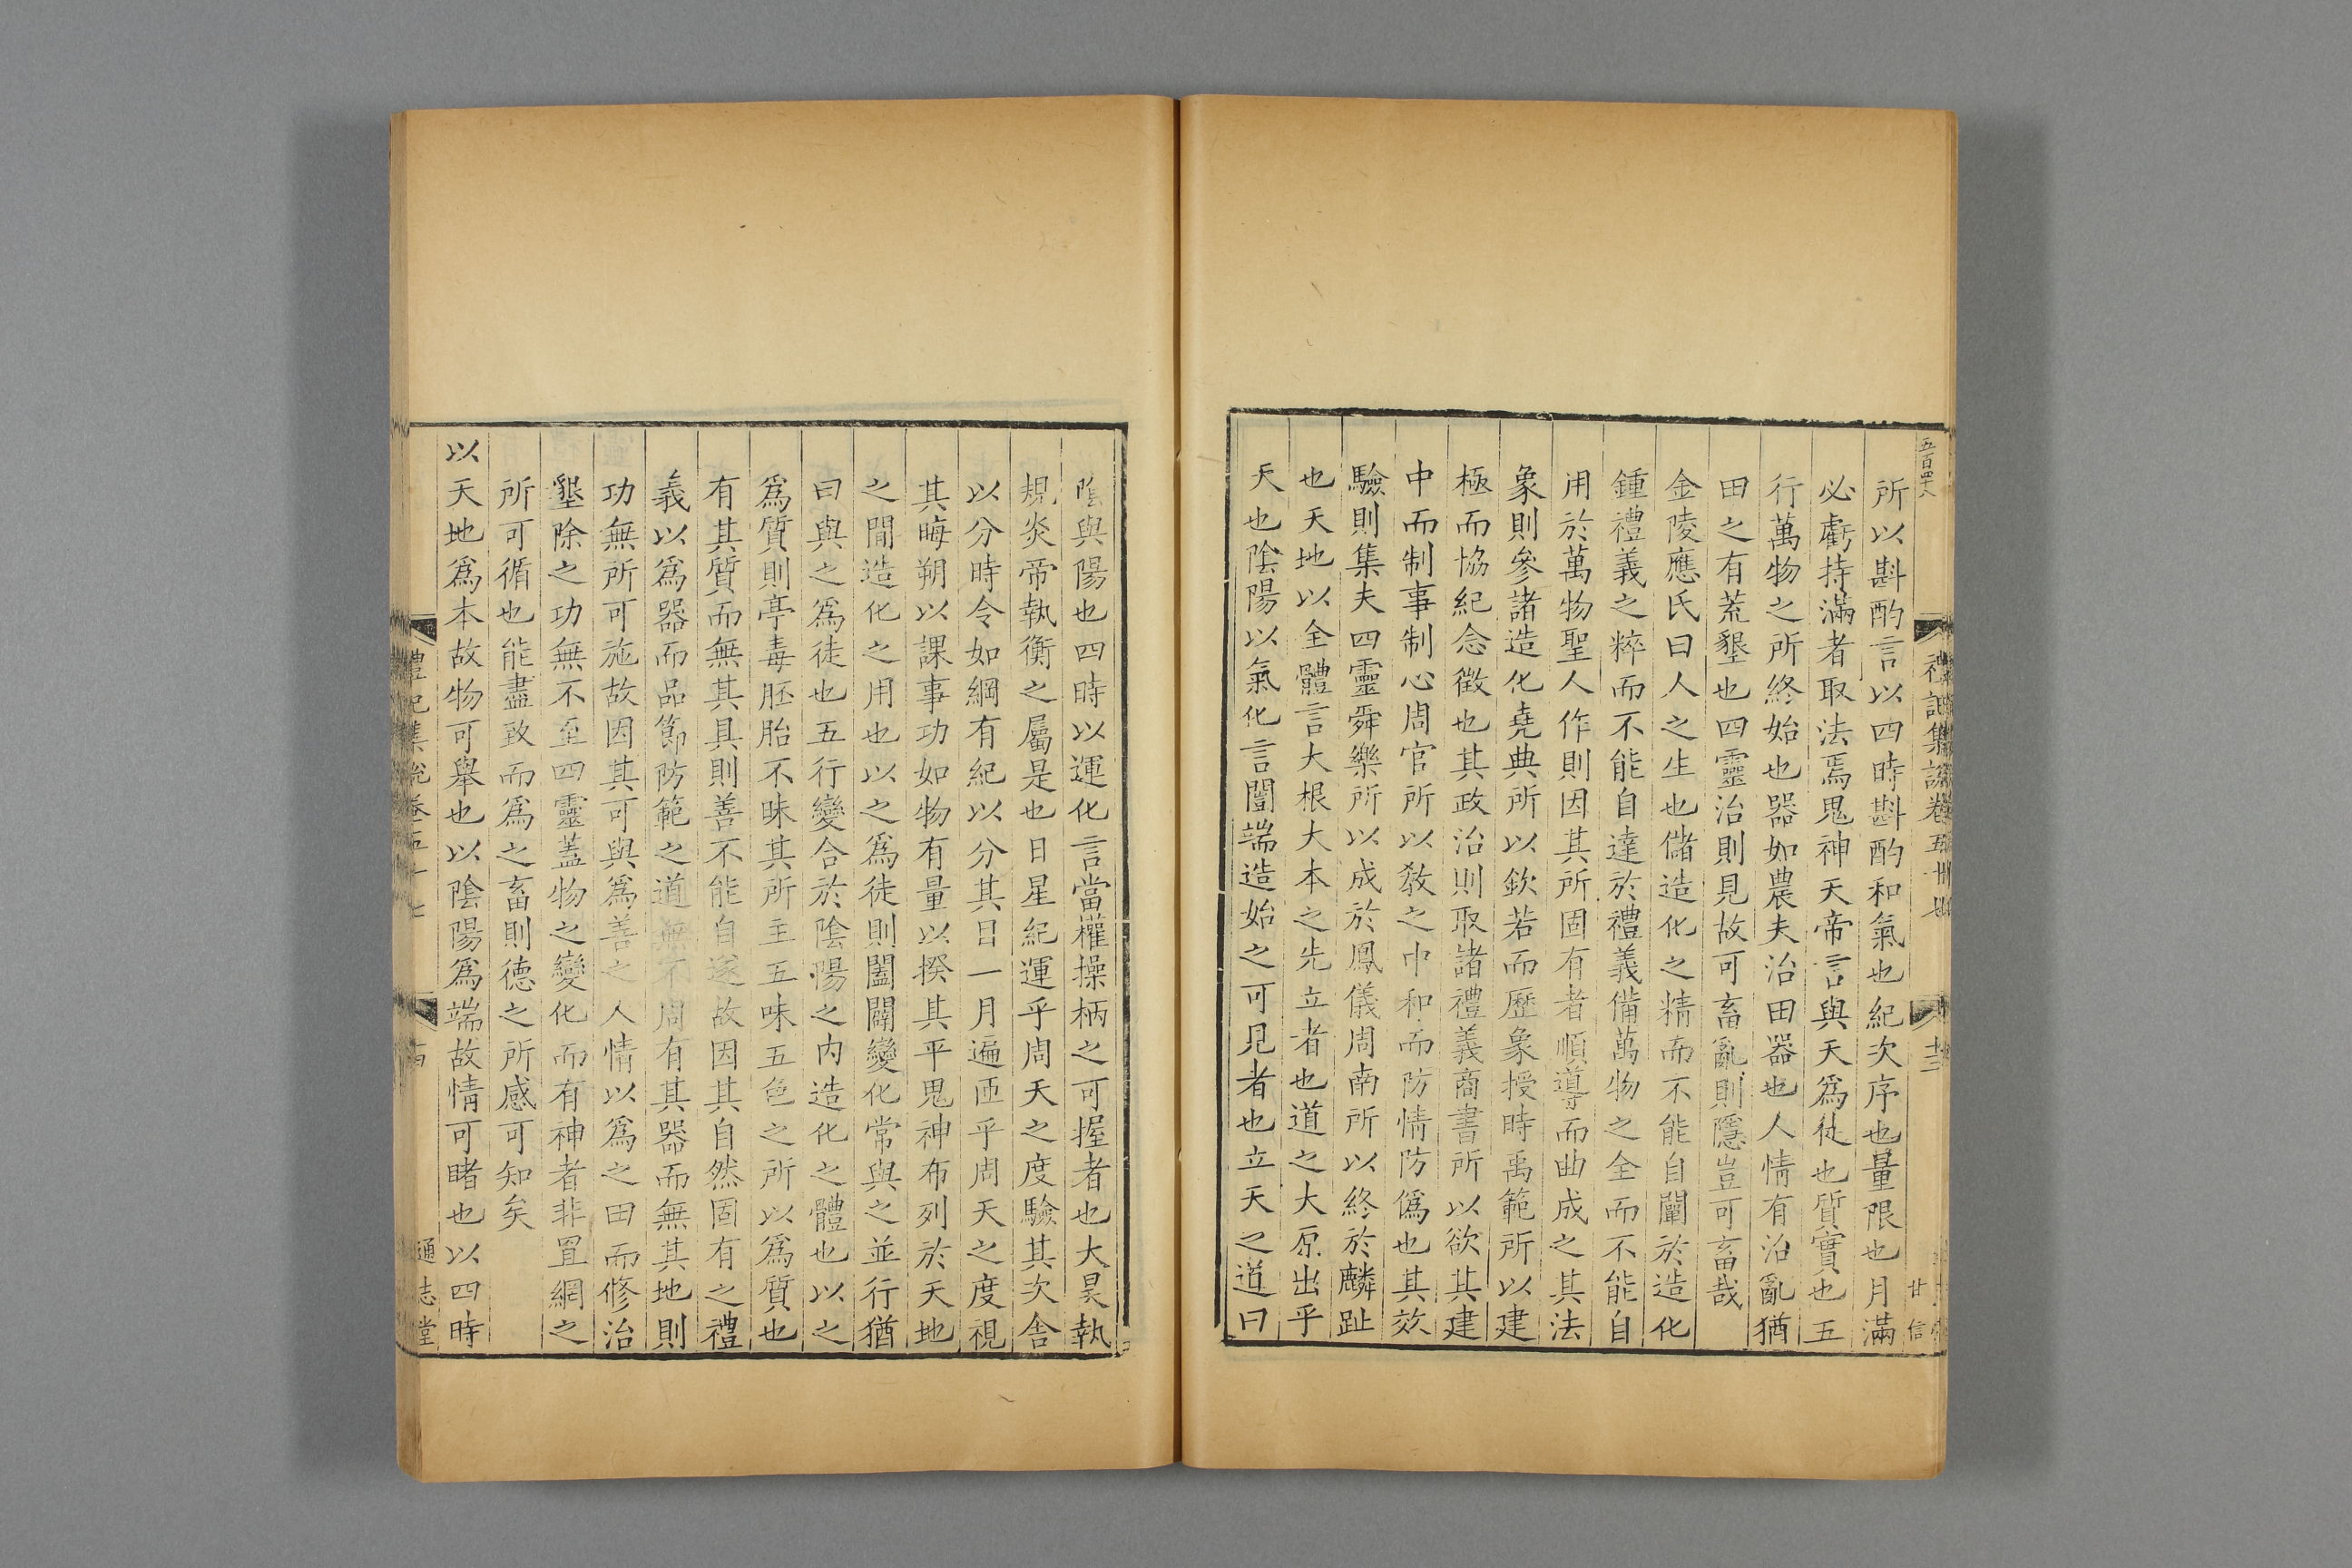 五百四十八
禮記集說卷五十七
十三
甘信
所以斟酌言以四時斟酌和氣也紀次序也量限也月滿
必虧持滿者取法焉鬼神天帝言與天爲徒也質實也五
行萬物之所終始也器如農夫治田器也人情有治亂猶
田之有荒墾也四靈治則見故可畜亂則隱豈可畜哉
金陵應氏曰人之生也儲造化之精而不能自闡於造化
鍾禮義之粹而不能自達於禮義備萬物之全而不能自
用於萬物聖人作則因其所固有者順導而曲成之其法
象則參諸造化堯典所以欽若而歷象授時禹範所以建
極而協紀念徵也其政治則取諸禮義商書所以欲其建
中而制事制心周官所以教之中和而防情防僞也其效
驗則集夫四靈舜樂所以成於鳳儀周南所以終於麟趾
也天地以全體言大根大本之先立者也道之大原出乎
天也陰陽以氣化言闓端造始之可見者也立天之道曰
陰與陽也四時以運化言當權操柄之可握者也大昊執
規炎帝執衡之屬是也日星紀運乎周天之度驗其次舍
以分時令如綱有紀以分其日一月遍匝乎周天之度視
其晦朔以課事功如物有量以揆其平鬼神布列於天地
之間造化之用也以之爲徒則闔闢變化常與之並行猶
曰與之爲徒也五行變合於陰陽之内造化之體也以之
爲質則亭毒胚胎不昧其所主五味五色之所以爲質也
有其質而無其具則善不能自遂故因其自然固有之禮
義以爲器而品節防範之道無不周有其器而無其地則
功無所可施故因其可與爲善之人情以爲之田而修治
墾除之功無不至四靈蓋物之變化而有神者非罝網之
所可循也能盡致而爲之畜則德之所感可知矣
以天地爲本故物可舉也以陰陽爲端故情可睹也以四時
禮記集說卷五十七
十四
通志堂